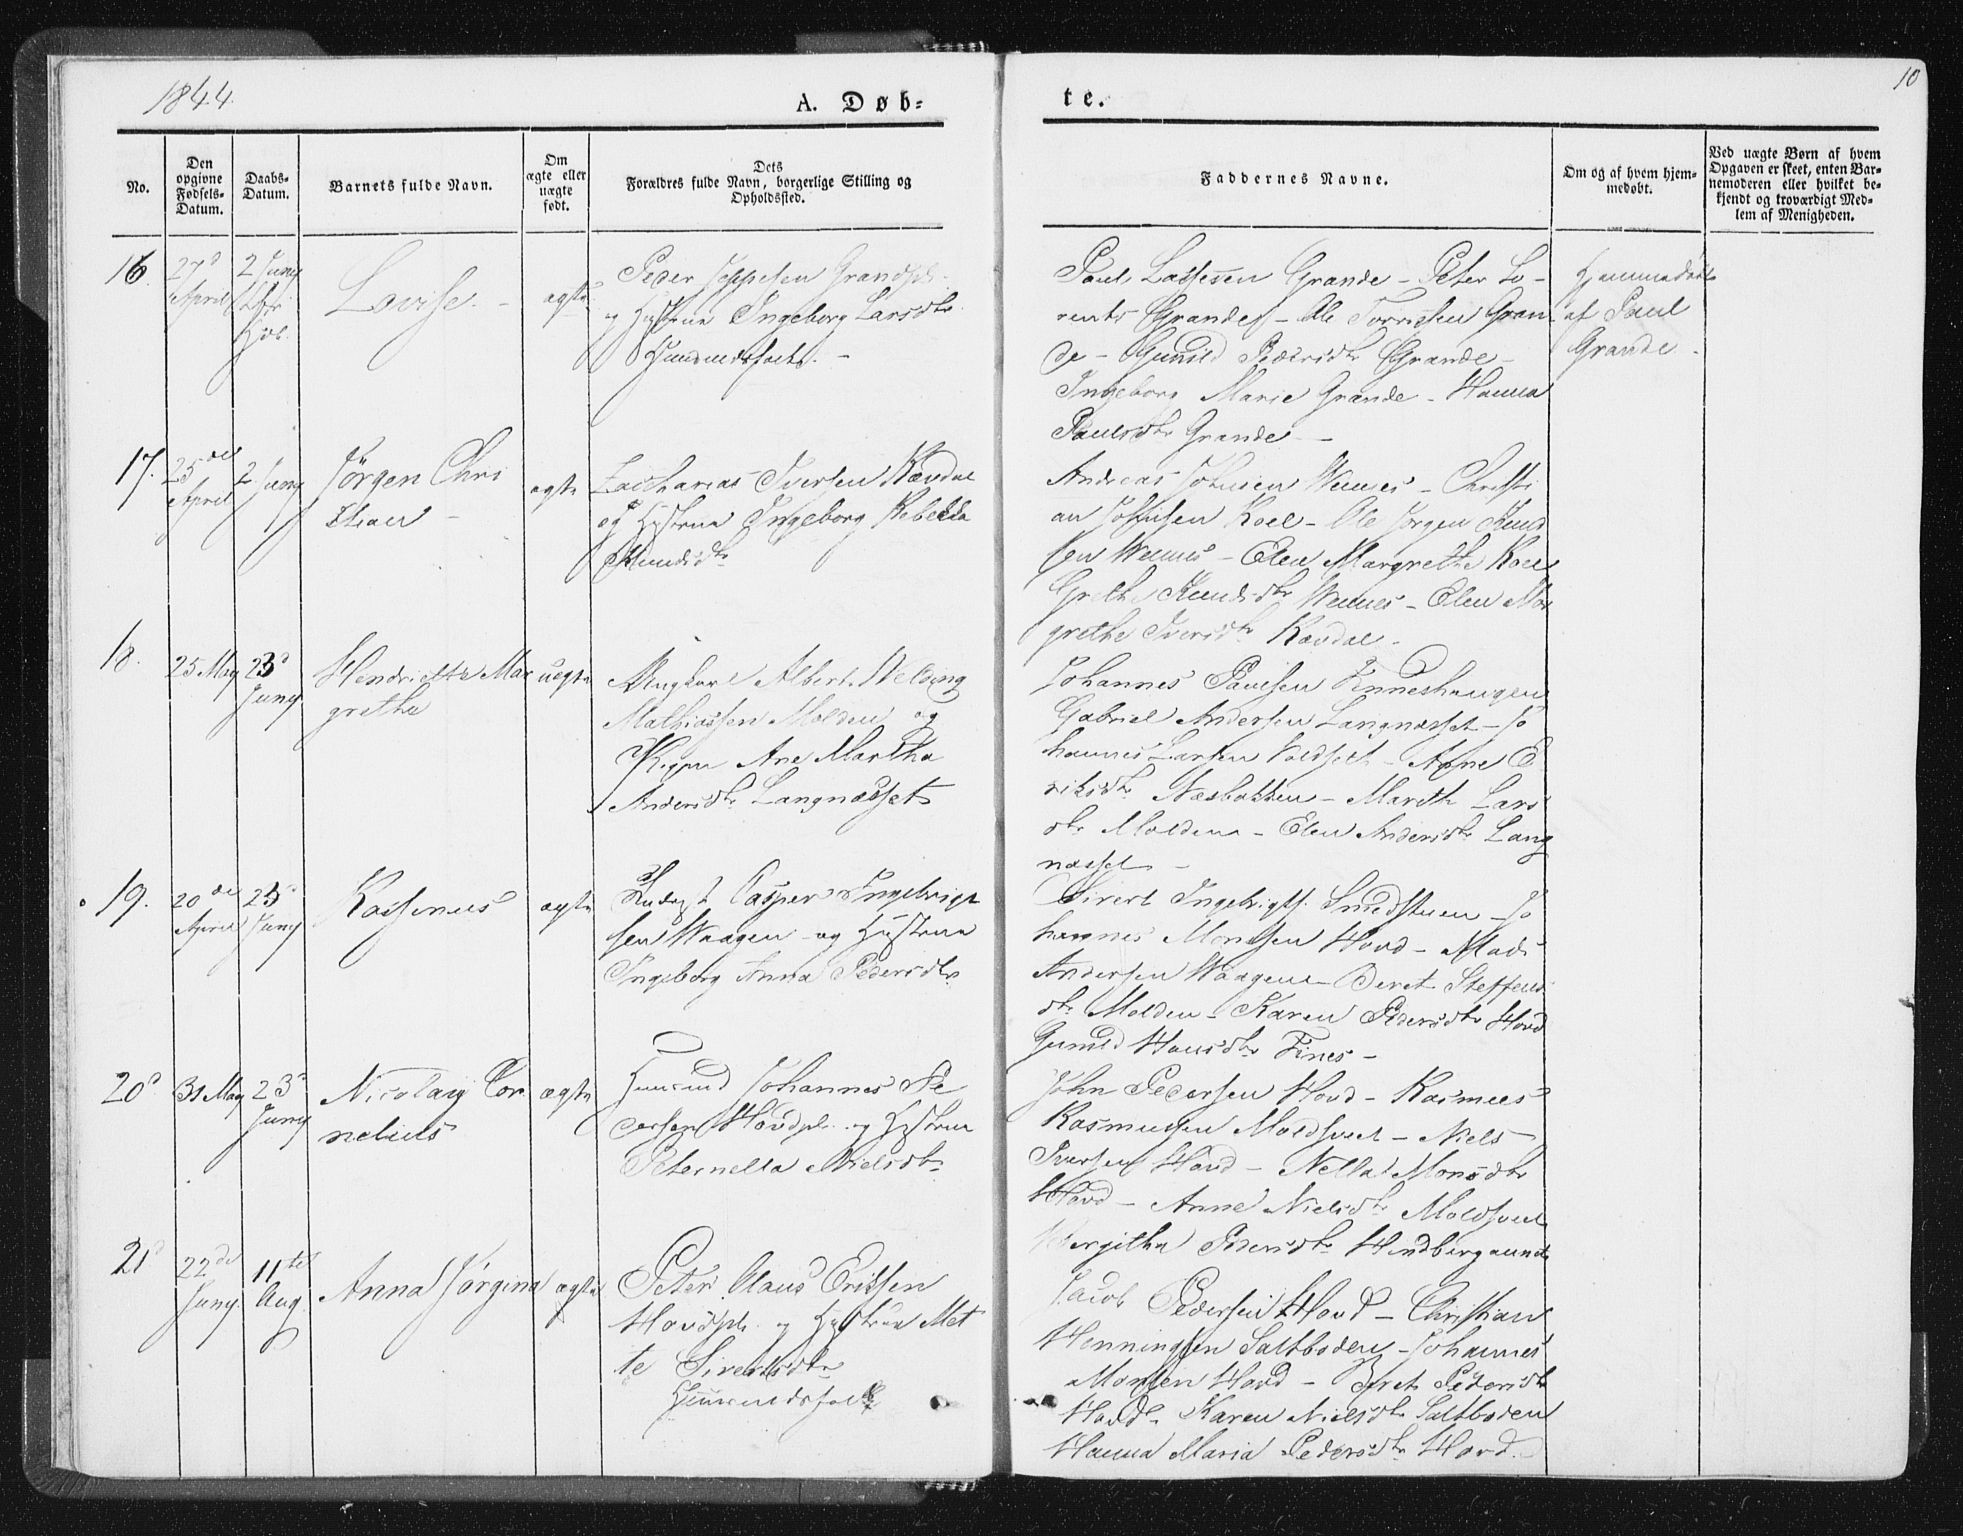 1844
A. Døb-
te.
10
No.
Den opgivne Fødsels-Datum.
Daabs-Datum.
Barnets fulde Navn.
Om ægte eller uægte født.
Dets Forældres fulde Navn, borgerlige Stilling og Opholdssted.
Faddernes Navne.
Om og af hvem hjem-meddøbt.
Ved uægte Børn af hvem Opgaven er skeet, enten Bar-nemoderen eller hvilket be-kjendt og troværdigt Med-lem af Menigheden.
16.
27d April
2 Juny
Lovise.
ægte
Peder Jeppesen Grandpl.
og Hustrue Ingeborg Larsdtr
Huusmandsfolk. -
Paul Lassesen Grande - Peter Lo-
rents Grande - Ole Torrissen Gran-
de - Gunild Pedersdtr Grande -
Ingeborg Marie Grande - Hanna
Paulsdtr Grande -
Hjemmedøbt
af Paul
Grande -
17.
25de April
2 Juny
Jørgen Chri
stian -
ægte
Zacharias Iversen Kavdal
og Hustrue Ingeborg Rebekka
Knudsdtr
Andreas Johnsen Wemes - Christi
an Johnsen Koel - Ole Jørgen Knud
sen Wemes - Elen Margrethe Koel
Grethe Knudsdtr Wemes - Elen Mar
grethe Iversdtr Kavdal -
18.
25 May
23d Juny
Hendriette Mar
grethe
uegte
Ungkarl Albert Melding
Mathiassen Molden og
Pigen Ane Martha
Andersdtr Langnæsset
Johannes Paulsen Finneshaugen
Gabriel Andersen Langnæsset - Jo
hannes Larsen Voldset - Anne E
riksdtr Næsbakken - Mareth Lars
dtr Molden - Elen Andersdtr Lang
næsset -
19.
20de April
23d Juny
Rassmus
ægte
Inderst Casper Ingebrigt
sen Waagen og Hustrue
Ingeborg Anna Pedersdtr
Sivert Ingebrigts. Smedstuen - Jo
hannes Monsen Hovd - Mads
Andersen Waagen - Beret Steffens
dtr Molden - Karen Pedersdtr Hovd
Gunild Hansdtr Fines -
20d
31 May
23d Juny
Nicolay Cor
nelius
ægte
Huusmd Johannes Pe
dersen Hovdpl. og Hustrue
Peternella Nielsdtr
John Pedersen Hovd - Rasmus
Rasmussen Moldsvet - Niels
Iversen Hovd - Nella Monsdtr
Hovd - Anne Nielsdtr Moldsvet
Bergitha Pedersdtr Hindbergaunet
21d
22de Juny
11te Aug.
Anna Jørgina
ægte
Peter Olaus Eriksen
Hovdpl. og Hustrue Met
te Sivertsdtr
Huusmandsfolk
Jacob Pedersen Hovd - Christian
Henningsen Saltboden - Johannes
Monsen Hovd - Beret Pedersdtr
Hovd - Karen Nielsdtr Saltboden
Hanna Maria Pedersdtr Hovd.